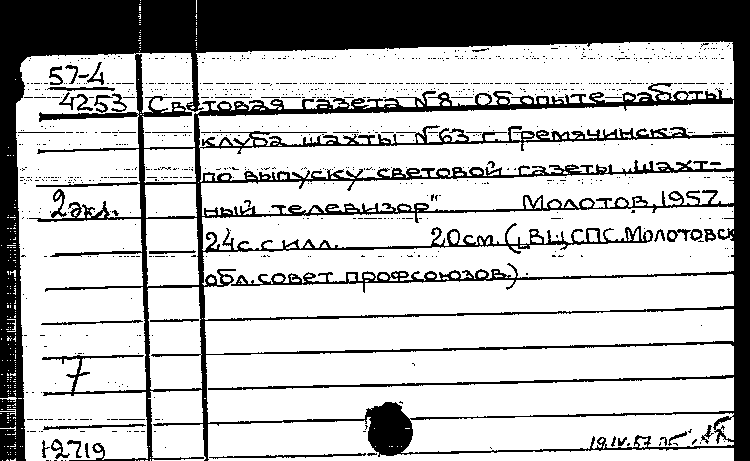 57-4
4253 Световая газета №8. Об опыте работы
клуба шахты №63 г. Гремячинска
по выпуску световой газеты „Шахт-
2 экз. ный телевизор" Молотов, 1957.
24с. с илл. 20см. (ВЦСПС. Молотовск
обл. совет профсоюзов.)
7
12719 19.IV.57